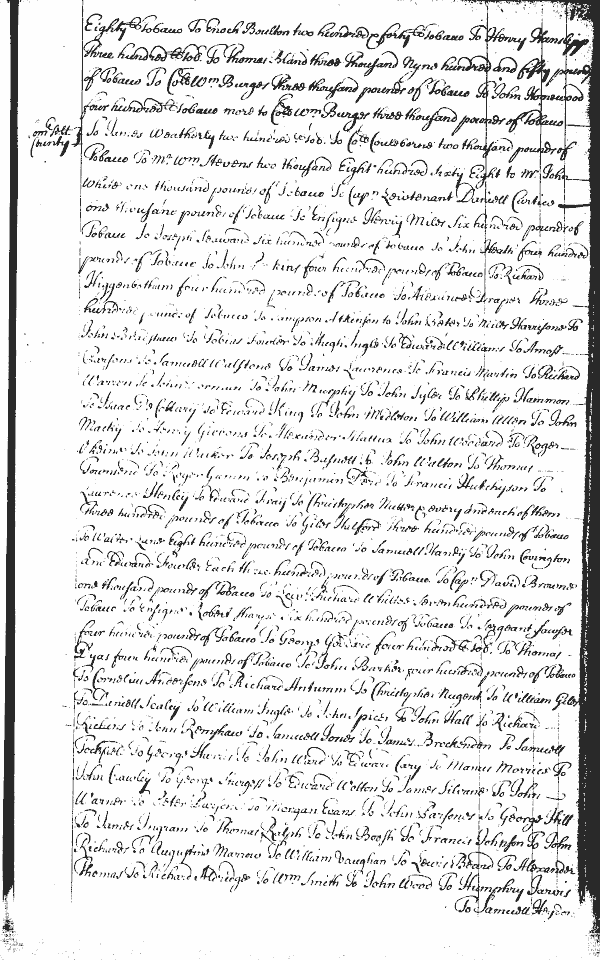 Eighty lb Tobacco To Enoch Boulton two hundred & forty lb Tobacco To Henry
Three hundred lb Tob. To Thomas Bland three thousand Nyne hundred and fifty pounds
of Tobacco To Coll Wm Burges Three thousand pounds of Tobacco To John Homewood
four hundred lb Tobacco more to Coll Wm Burges three thousand pounds of Tobacco
Somersett County } To James Weatherly two hundred lb Tob. To Coll Coulborne two thousand pounds of
Tobacco To Mr Wm Stevens two thousand Eight hundred sixty Eight to Mr John
White one thousand pounds of Tobacco To Capn Leiutenant Daniell Curtice
one thousand pounds of Tobacco To Ensigne Henry Miles Six hundred pounds of
Tobacco To Joseph Seaward Six hundred pounds of Tobacco to John Heath four hundred
pounds of Tobacco To John four hundred pounds of Tobacco To Richard
Higgenbotham four hundred pounds of Tobacco To Alexander Draper three
hundred pounds of Tobacco To Sampson Atkinson to John Peter To Miles Harrisone To
John Bradshaw To Tobias To Hugh Ingle To Edward Williams To Amos
Parsons To Samuell Walstone To James Laurence To Francis Martin To Richard
Warren To John To John Murphy To John Tyler To Phillip Hammon
To Isaac To Edward King To John Midleton To William Allen To John
Macky To Henry Givens To Alexander To John To Roger
To John To Joseph To John Walton To Thomas
Townsend To Roger To Benjamin To Francis Hutchyson To
Laurence Henley To Edward To Christopher Nutter & every and each of them
three hundred pounds of Tobacco To Giles three hundred pounds of Tobacco
To Walter Lane Eight hundred pounds of Tobacco To Samuell Handy To John Covington
and Edward Fowler Each three hundred pounds of Tobacco To Capn David Browne
one thousand pounds of Tobacco To Leiut Richard Whittee Seven hundred pounds of
Tobacco To Ensigne Robert Six hundred pounds of Tobacco To Sergeant
four hundred pounds of Tobacco To George four hundred lb Tob. To Thomas
four hundred pounds of Tobacco To John four hundred pounds of Tobacco
To Cornelius Andersone To Richard To Christopher Nugent To William Giles
To Daniell Sealey To William Ingle To John Spicer To John Hall To Richard
To John Renshaw To Samuell Jones To James Brockenden To Samuell
To George Harris To John Ward To Edward Cary To Manus Morrice To
John Crawley To George To Edward Wolton To James To John
Warner To Peter To Morgan Evans To John Parsones To George Hill
To James Ingram To Thomas Ralph To John Boosh To Francis Johnson To John
Richards To Augustine Marrow To William Vaughan To Lewis Beard To Alexander
Thomas To Richard Aldridge To Wm Smith To John Wood To Humphry Jarvis
To Samuell